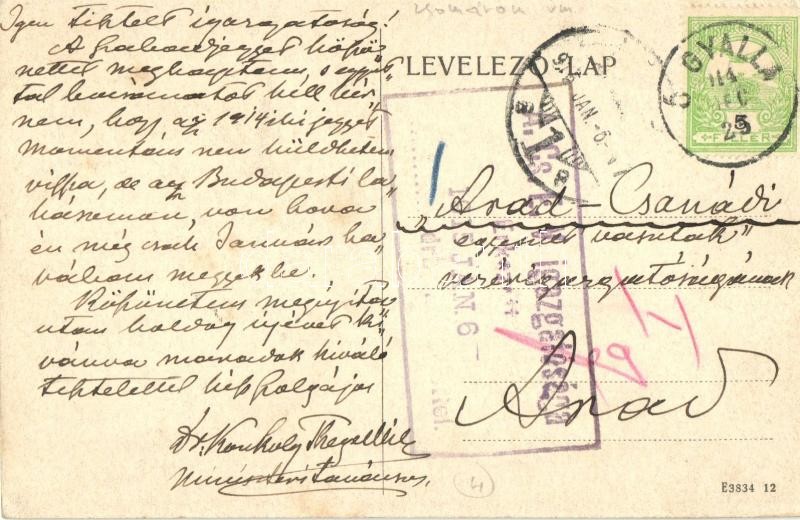 Igen tisztelt igazgatóság!
A szabadjegyet köszö„
nettel meghagytam, s egyút„
tal bocsánatot kell kér„
nem, hogy az 1914iki jegyet
momentán nem küldhetem
vissza, de az Budapesti la„
kásomon, van hova
én még csak Január ha„
vában megyek be.
Köszönetem megújítása
után boldog újévet kí„
vánva maradok kiváló
tisztelettel kész szolgája
Dr. Konkoly Thege Miklós
Ministeri tanácsos.
LEVELEZŐ-LAP
Ó GYALLA
914
DEC
29
5
FILLER
JAN -6
1
Arad-Csanádi
egyesült vasutak
vezérigazgatóságának
Arad
igazgatósága
JAN 6-
4
E3834 12